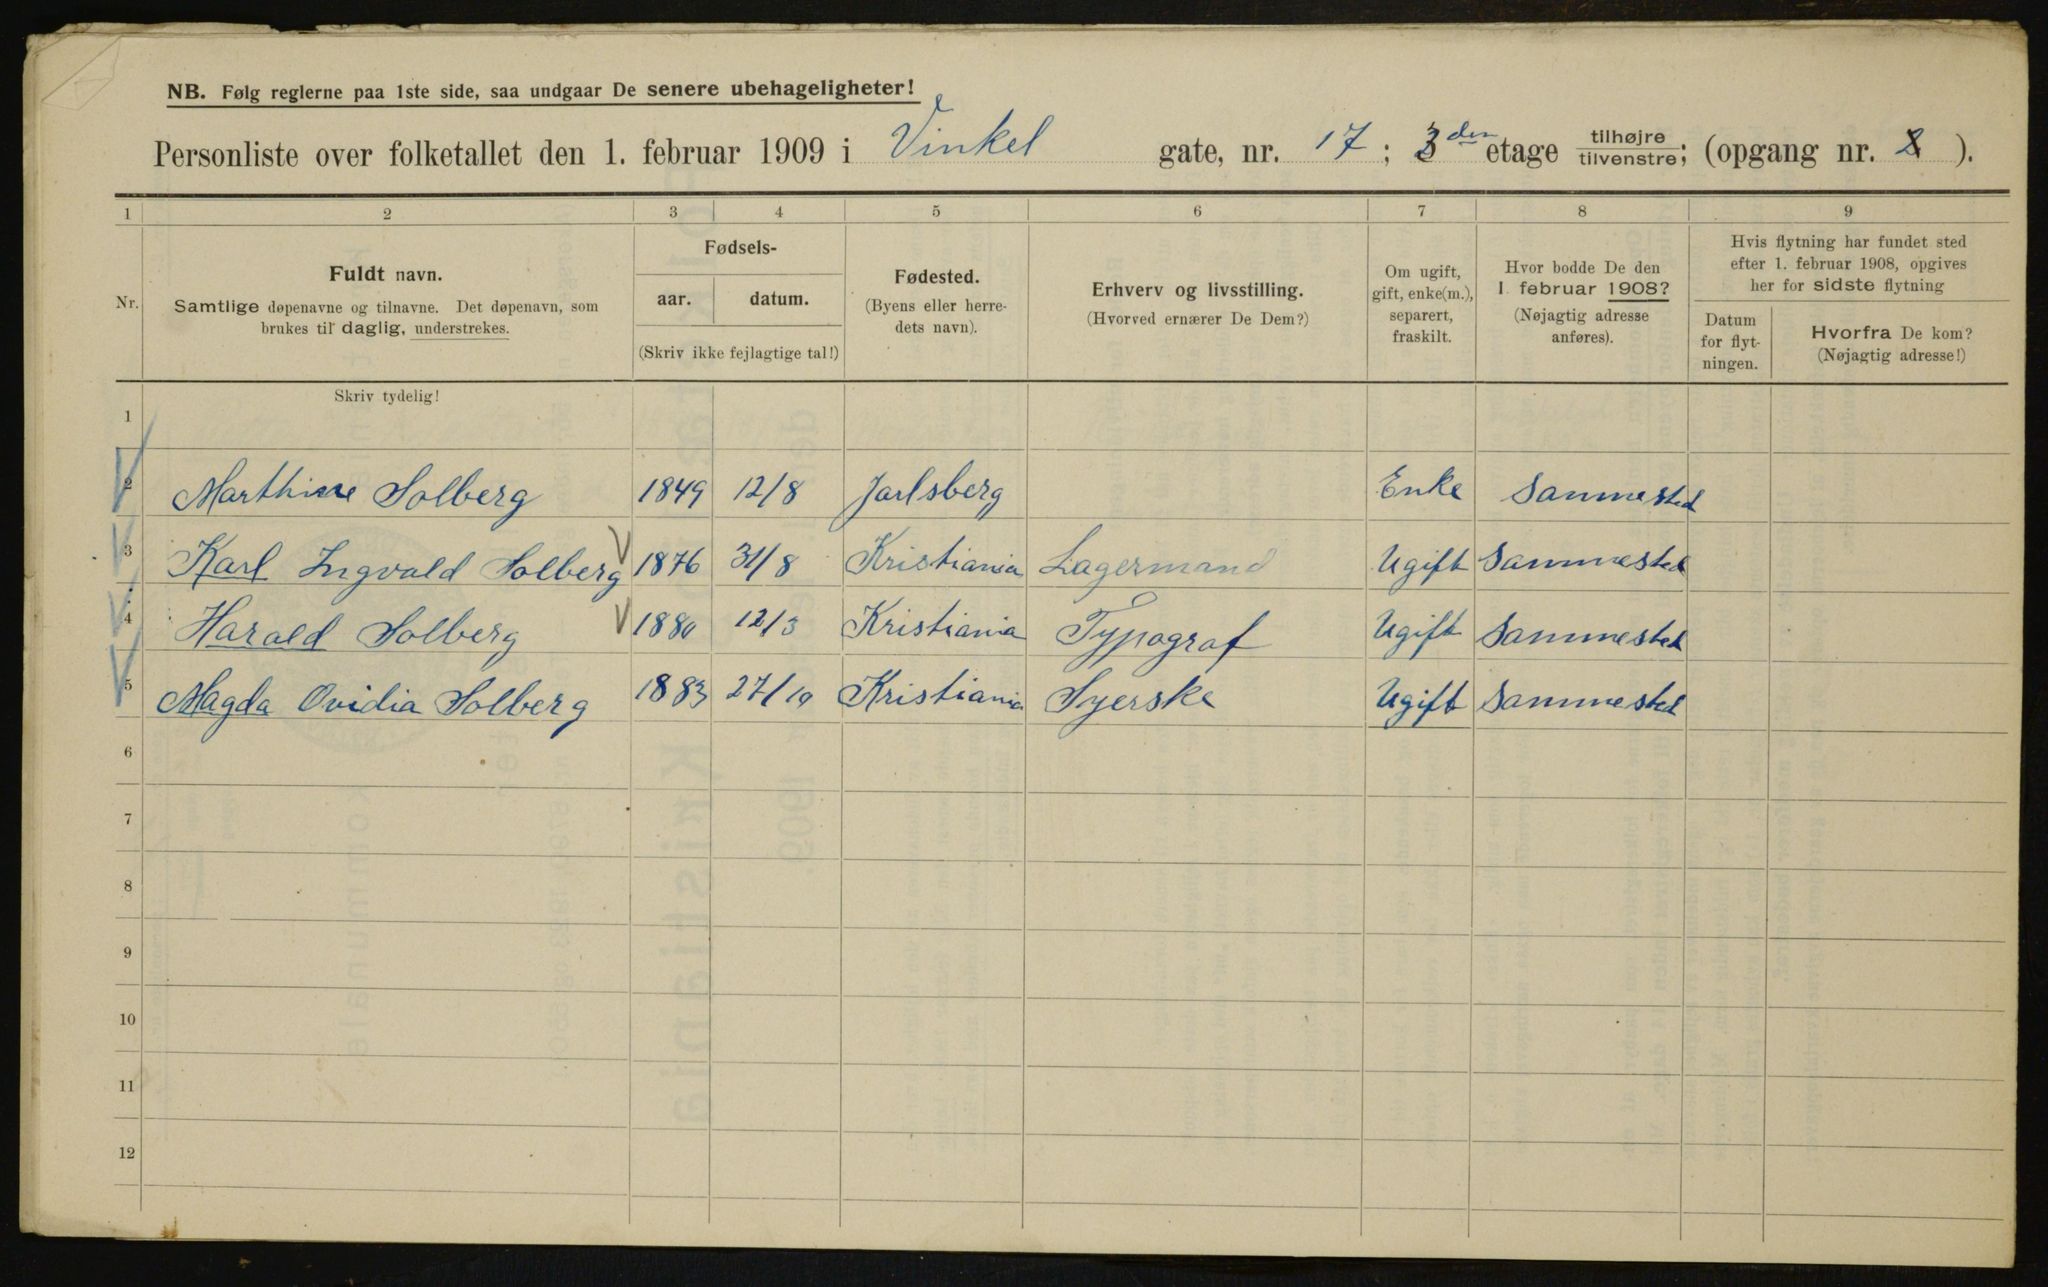 NB. Følg reglerne paa 1ste side, saa undgaar De senere ubehageligheter!
Personliste over folketallet den 1. februar 1909 i Vinkel gate, nr. 17; 3den etage tilhøjre/tilvenstre; (opgang nr. ).
1 2 3 4 5 6 7 8 9
Nr.
Fuldt navn.
Samtlige døpenavne og tilnavne. Det døpenavn, som
brukes til daglig, understrekes.
Fødsels-
aar. datum.
(Skriv ikke fejlagtige tal!)
Fødested.
(Byens eller herre-
dets navn).
Erhverv og livsstilling.
(Hvorved ernærer De Dem?)
Om ugift,
gift, enke(m.),
separert,
fraskilt.
Hvor bodde De den
1. februar 1908?
(Nøjagtig adresse
anføres).
Hvis flytning har fundet sted
efter 1. februar 1908, opgives
her for sidste flytning
Datum
for flyt-
ningen.
Hvorfra De kom?
(Nøjagtig adresse!)
Skriv tydelig!
1
2 Marthine Solberg 1849 12/8 Jarlsberg Enke Sammested
3 Karl Ingvald Solberg 1876 31/8 Kristiania Lagermand Ugift Sammested
4 Harald Solberg 1880 12/3 Kristiania Typograf Ugift Sammested
5 Magda Ovidia Solberg 1883 27/10 Kristiania Syerske Ugift Sammested
6
7
8
9
10
11
12